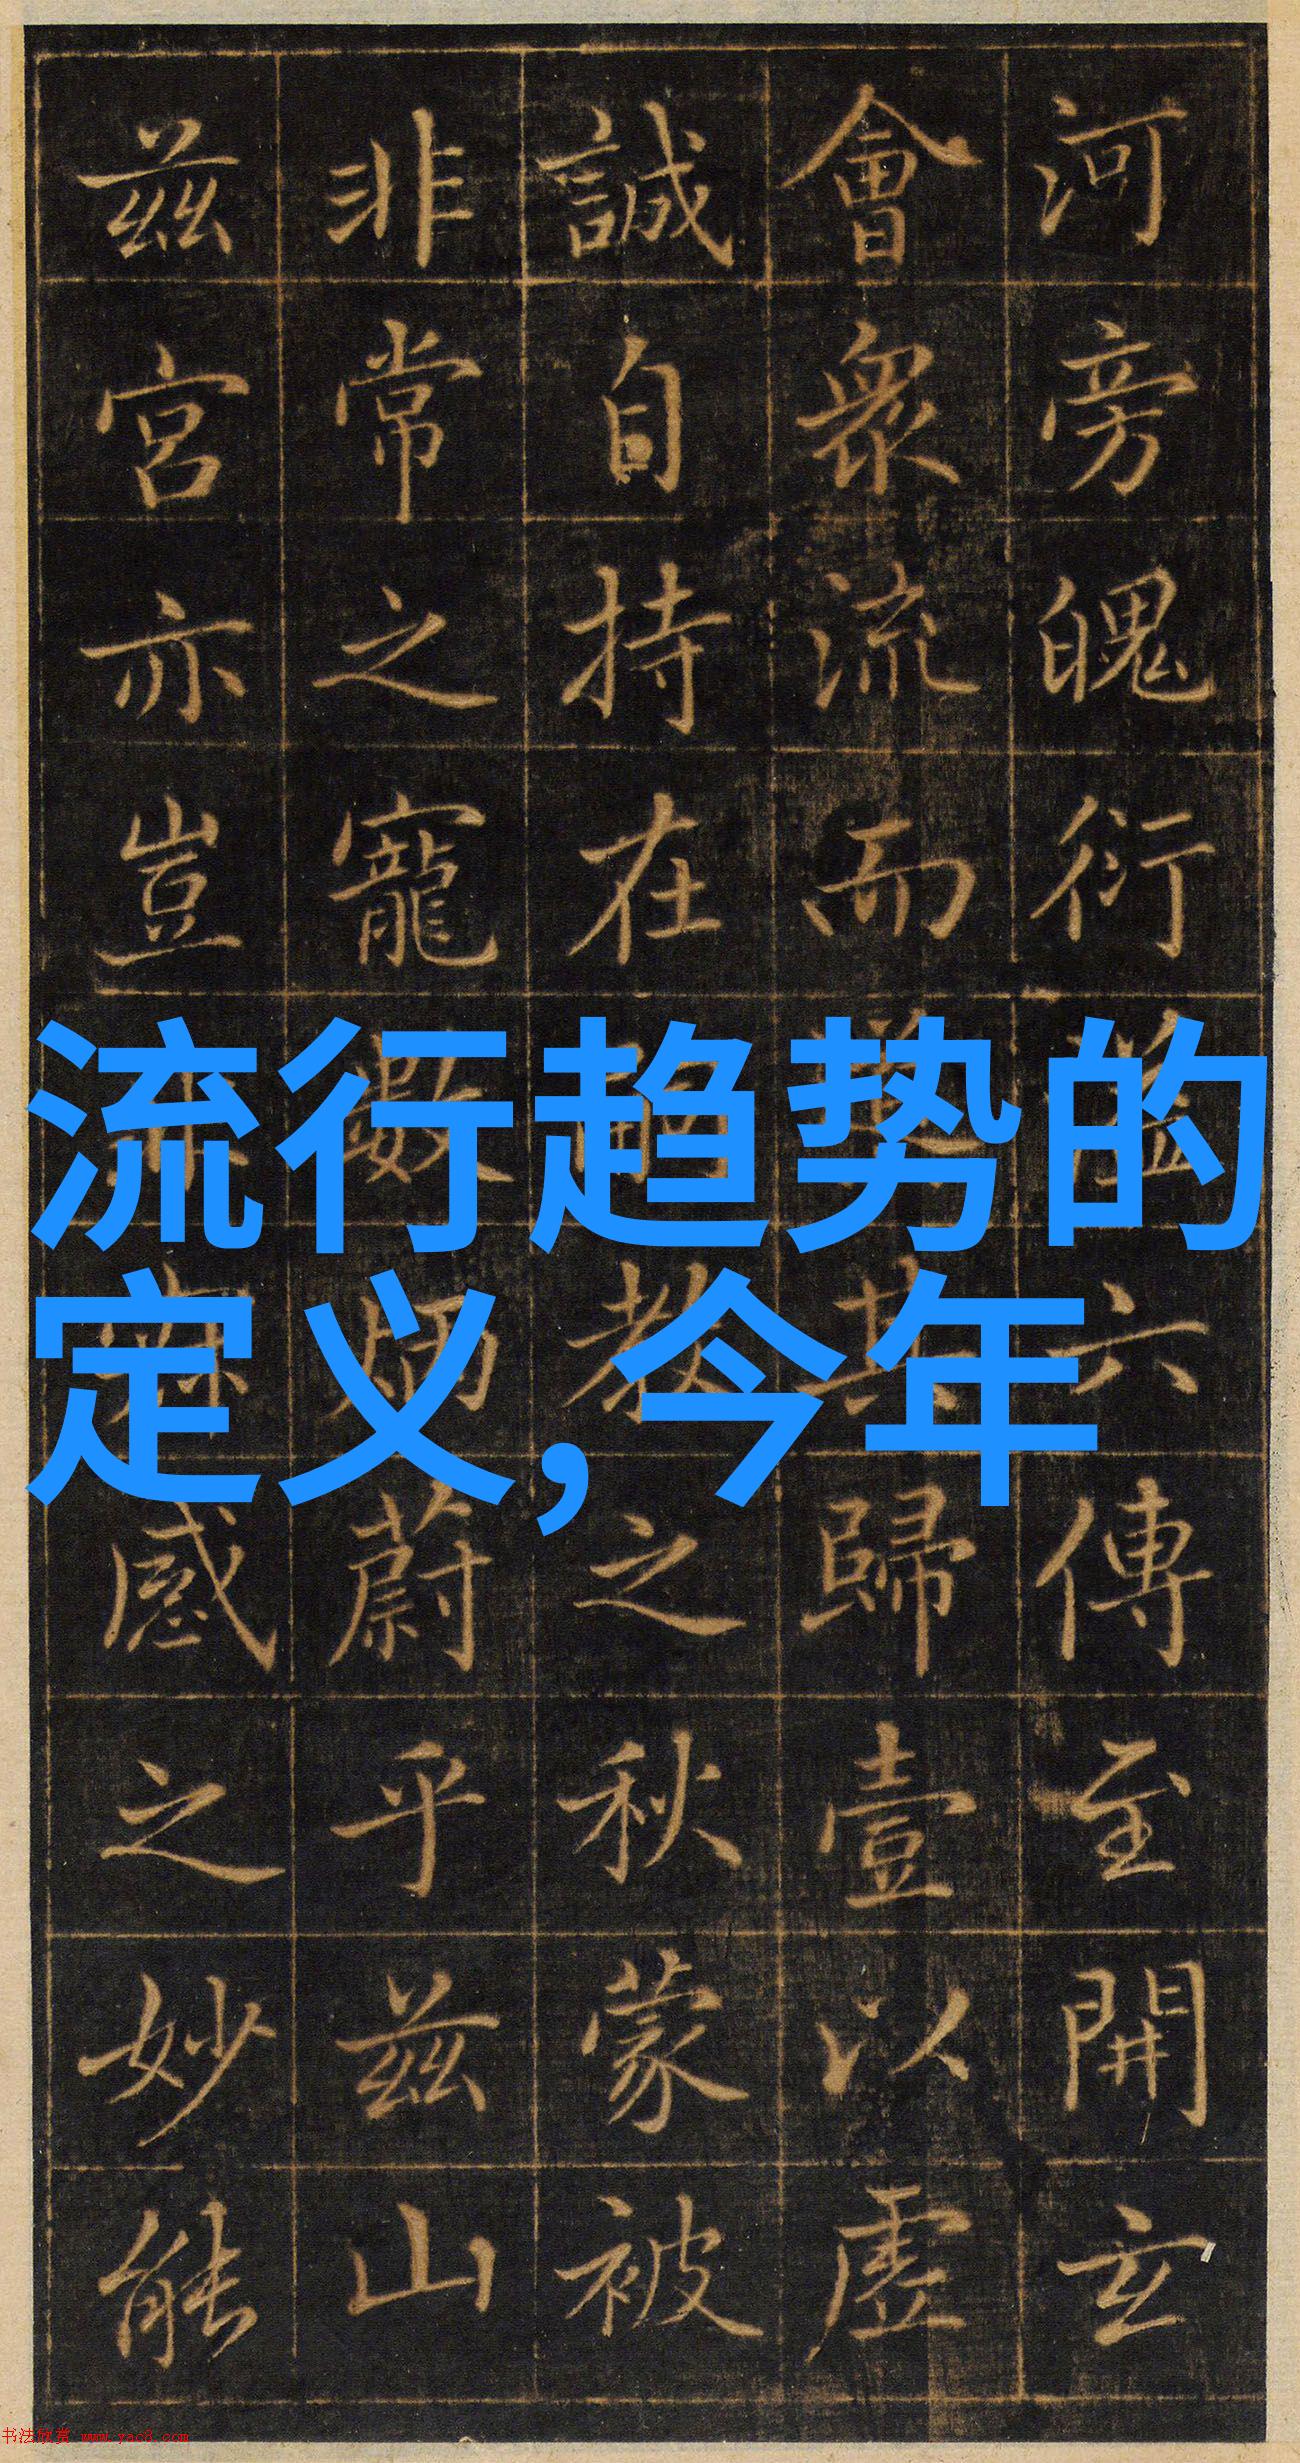 河旁魄衍溢六傳至開玄
會衆流而其歸壹以虛
誠自持在教之秋蒙被
非常之寵數炳蔚乎茲山
茲宮亦豈無感之妙能
流行趋势的
定义,今年
书法欣赏 www.yac8.com